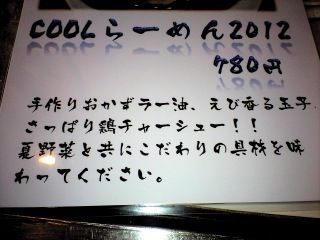 COOLらーめん2012
780円
手作りおかずラー油、えび香る玉子
さっぱり鶏チャーシュー!!
夏野菜と共にこだわりの具材を味
わってください。